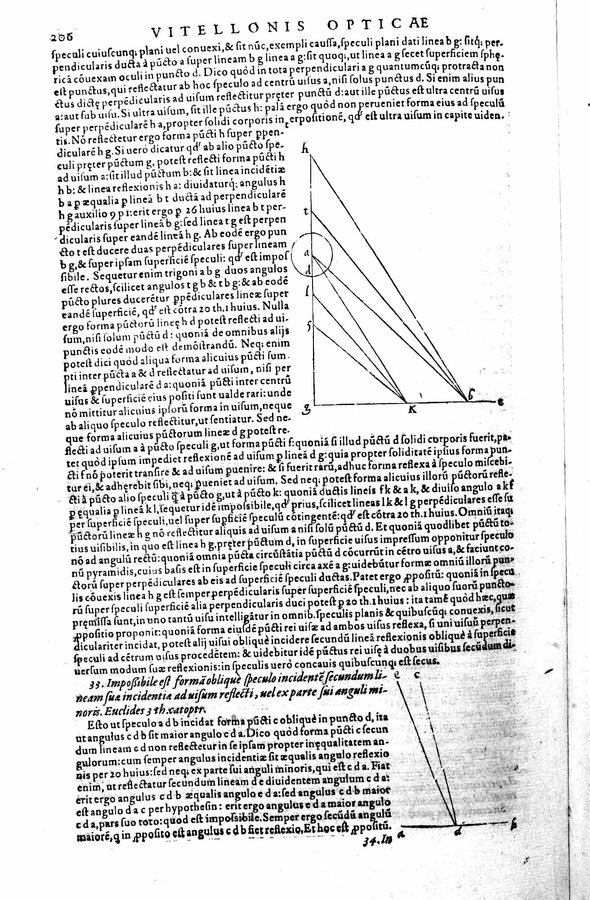 206 VITELLONIS OPTICAE
speculi cuiuscunq; plani uel conuexi, & sit nũc, exempli caussa, speculi plani dati linea b g: sitq́; per-
pendicularis ducta à pũcto a super lineam b g linea a g: sit quoq;, ut linea a g secet superficiem sphę-
ricã cõuexam oculi in puncto d. Dico quòd in tota perpendiculari a g quantumcunq; protracta non
est punctus, qui reflectatur ab hoc speculo ad centrũ uisus a, nisi solus punctus d. Si enim alius pun
ctus dictę perpẽdicularis ad uisum reflectitur pręter punctũ d: aut ille pũctus est ultra centrũ uisus
a: aut sub uisu. Si ultra uisum, sit ille pũctus h: palã ergo quòd non perueniet forma eius ad speculũ
super perpẽdicularẽ h a, propter solidi corporis interpositionẽ, qd́ est ultra uisum in capite uiden.
tis. Nõ reflectetur ergo forma pũcti h super ppen-
dicularẽ h g. Si uerò dicatur qd́ ab alio pũcto spe-
culi pręter pũctum g, potest reflecti forma pũcti h
ad uisum a: sit illud pũctum b: & sit linea incidẽtiæ
h b: & linea reflexionis h a: diuidaturq́; angulus h
b a p æqualia p lineã b t ductã ad perpendicularẽ
h g auxilio 9 p 1: erit ergo p 26 huius linea b t per-
pẽdicularis super lineã b g: sed linea t g est perpen
dicularis super eandẽ lineã h g. Ab eodẽ ergo pun
cto t est ducere duas perpẽdiculares super lineam
b g, & super ipsam superficiẽ speculi: qd́ est impos
sibile. Sequetur enim trigoni a b g duos angulos
esse rectos, scilicet angulos t g b & t b g: & ab eodẽ
pũcto plures ducerẽtur ppẽdiculares lineæ super
eandẽ superficiẽ, qd́ est cõtra 20 th. 1 huius. Nulla
ergo forma pũctorũ lineę h d potest reflecti ad ui-
sum, nisi solum pũctũ d: quoniã de omnibus alijs
punctis eodẽ modo est demõstrandũ. Neq; enim
potest dici quòd aliqua forma alicuius pũcti sum.
pti inter pũcta a & d reflectatur ad uisum, nisi per
lineã ppendicularẽ d a: quoniã pũcti inter centrũ
uisus & superficiẽ eius positi sunt ualde rari: unde
nõ mittitur alicuius ipsorũ forma in uisum, neque
ab aliquo speculo reflectitur, ut sentiatur. Sed ne-
que forma alicuius pũctorum lineæ d g potest re-
flecti ad uisum a à pũcto speculi g, ut forma pũcti f: quoniã si illud pũctũ d solidi corporis fuerit, pa-
tet quòd ipsum impediet reflexionẽ ad uisum p lineã d g: quia propter soliditatẽ ipsius forma pun-
cti f nõ poterit transire & ad uisum puenire: & si fuerit rarũ, adhuc forma reflexa à speculo miscebi-
tur ei, & adhęrebit sibi, neq; perueniet ad uisum. Sed neq; potest forma alicuius illorũ pũctorũ refle-
cti à pũcto alio speculi q̃ à pũcto g, ut à pũcto k: quoniã ductis lineis f k & a k, & diuiso angulo a k f
p ęqualia p lineã k l, sequetur idẽ impossibile, qd́ prius, scilicet lineas l k & l g perpẽdiculares esse su
per superficiẽ speculi, uel super supficiẽ speculũ cõtingentẽ: qd́ est cõtra 20 th. 1 huius. Omniũ itaq;
pũctorũ lineæ h g nõ reflectitur aliquis ad uisum a nisi solũ pũctũ d. Et quoniã quodlibet pũctũ to-
tius uisibilis, in quo est linea h g, pręter pũctum d, in superficie uisus impressum opponitur speculo
nõ ad angulũ rectũ: quoniã omnia pũcta circũstãtia pũctũ d cõcurrũt in cẽtro uisus a, & faciunt co-
nũ pyramidis, cuius basis est in superficie speculi circa axẽ a g: uidebũtur formæ omniũ illorũ pun-
ctorũ super perpẽdiculares ab eis ad superficiẽ speculi ductas. Patet ergo ppositũ: quoniã in specu
lis cõuexis linea h g est semper perpẽdicularis super superficiẽ speculi, nec ab aliquo suorũ puncto-
rũ super speculi superficiẽ alia perpẽdicularis duci potest p 20 th. 1 huius: ita tamẽ quòd hæc, quæ
pręmissa sunt, in uno tantũ uisu intelligãtur in omnib. speculis planis & quibuscunq; conuexis, sicut
ppositio proponit: quoniã forma eiusdẽ pũcti rei uisæ ad ambos uisus reflexa, si uni uisuũ perpen-
diculariter incidat, potest alij uisui obliquè incidere secundũ lineã reflexionis obliquè à superficie
speculi ad cẽtrum uisus procedẽtem: & uidebitur idẽ pũctus rei uisę à duobus uisibus secũdum di-
uersum modum suæ reflexionis: in speculis uerò concauis quibuscunq; est secus.
33. Impossibile est formã obliquè speculo incidentẽ secundum li-
neam suæ incidentiæ ad uisum reflecti, uel ex parte sui anguli mi-
noris. Euclides 3 th. catoptr.
Esto ut speculo a d b incidat forma pũcti c obliquè in puncto d, ita
ut angulus c d b sit maior angulo c d a. Dico quòd forma pũcti c secun
dum lineam c d non reflectetur in se ipsam propter inęqualitatem an-
gulorum: cum semper angulus incidentiæ sit æqualis angulo reflexio
nis per 20 huius: sed neq; ex parte sui anguli minoris, qui est c d a. Fiat
enim, ut reflectatur secundum lineam d e diuidentem angulum c d a:
erit ergo angulus c d b æqualis angulo e d a: sed angulus c d b maior
est angulo d a c per hypothesin: erit ergo angulus e d a maior angulo
c d a, pars suo toto: quod est impossibile. Semper ergo secũdũ angulũ
maiorẽ, q in pposito est angulus c d b fiet reflexio. Et hoc est ppositũ.
34. In
h
t
a
d
l
f
g
K
b
e
c
a
d
b